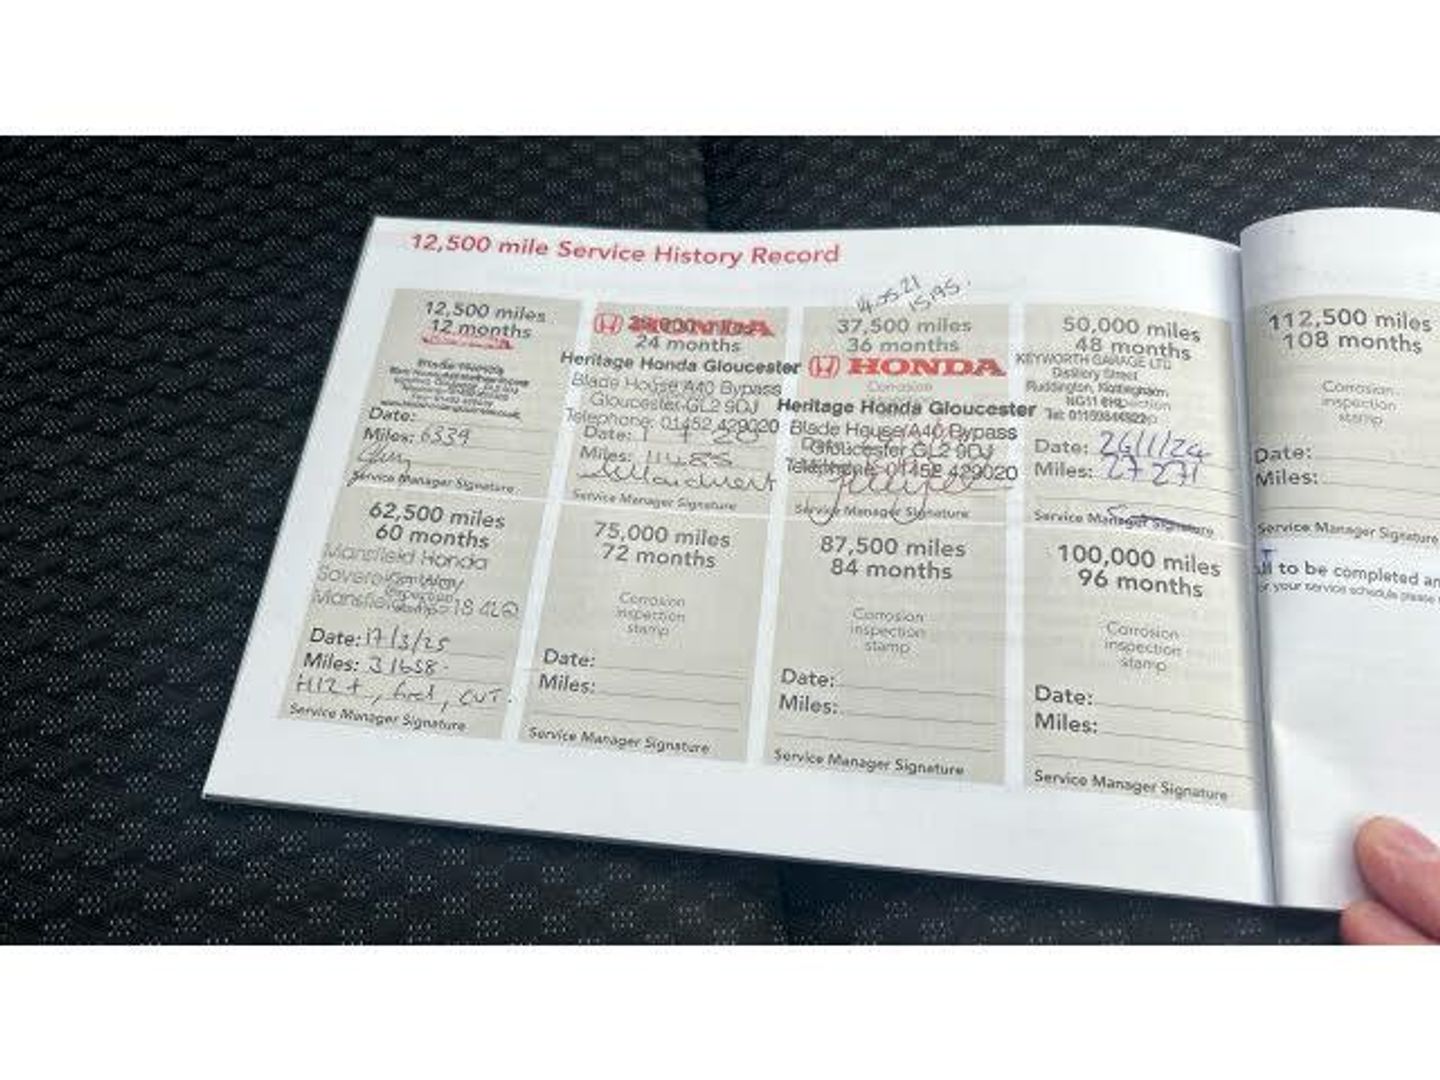 12,500 mile Service History Record
12,500 miles
12 months
Date:
Miles: 6339
Service Manager Signature
HONDA
24 months
Heritage Honda Gloucester
Blade House A40 Bypass
Gloucester GL2 9DJ
Telephone: 01452 429020
Date:
Miles: 11485
Service Manager Signature
37,500 miles
36 months
HONDA
Corrosion
Heritage Honda Gloucester
Blade House A40 Bypass
Gloucester GL2 9DJ
Telephone: 01452 429020
Service Manager Signature
50,000 miles
48 months
KEYWORTH GARAGE LTD
Distillery Street
Ruddington, Nottingham
NG11 6HL
Date: 26/1/24
Miles: 27 271
Service Manager Signature
62,500 miles
60 months
Mansfield Honda
Sovereign Way
Mansfield
Date: 17/3/25
Miles: 31658
Service Manager Signature
75,000 miles
72 months
Corrosion
inspection
stamp
Date:
Miles:
Service Manager Signature
87,500 miles
84 months
Corrosion
inspection
stamp
Date:
Miles:
Service Manager Signature
100,000 miles
96 months
Corrosion
inspection
stamp
Date:
Miles:
Service Manager Signature
112,500 miles
108 months
Corrosion
inspection
stamp
Date:
Miles:
Service Manager Signature
to be completed
your service schedule please